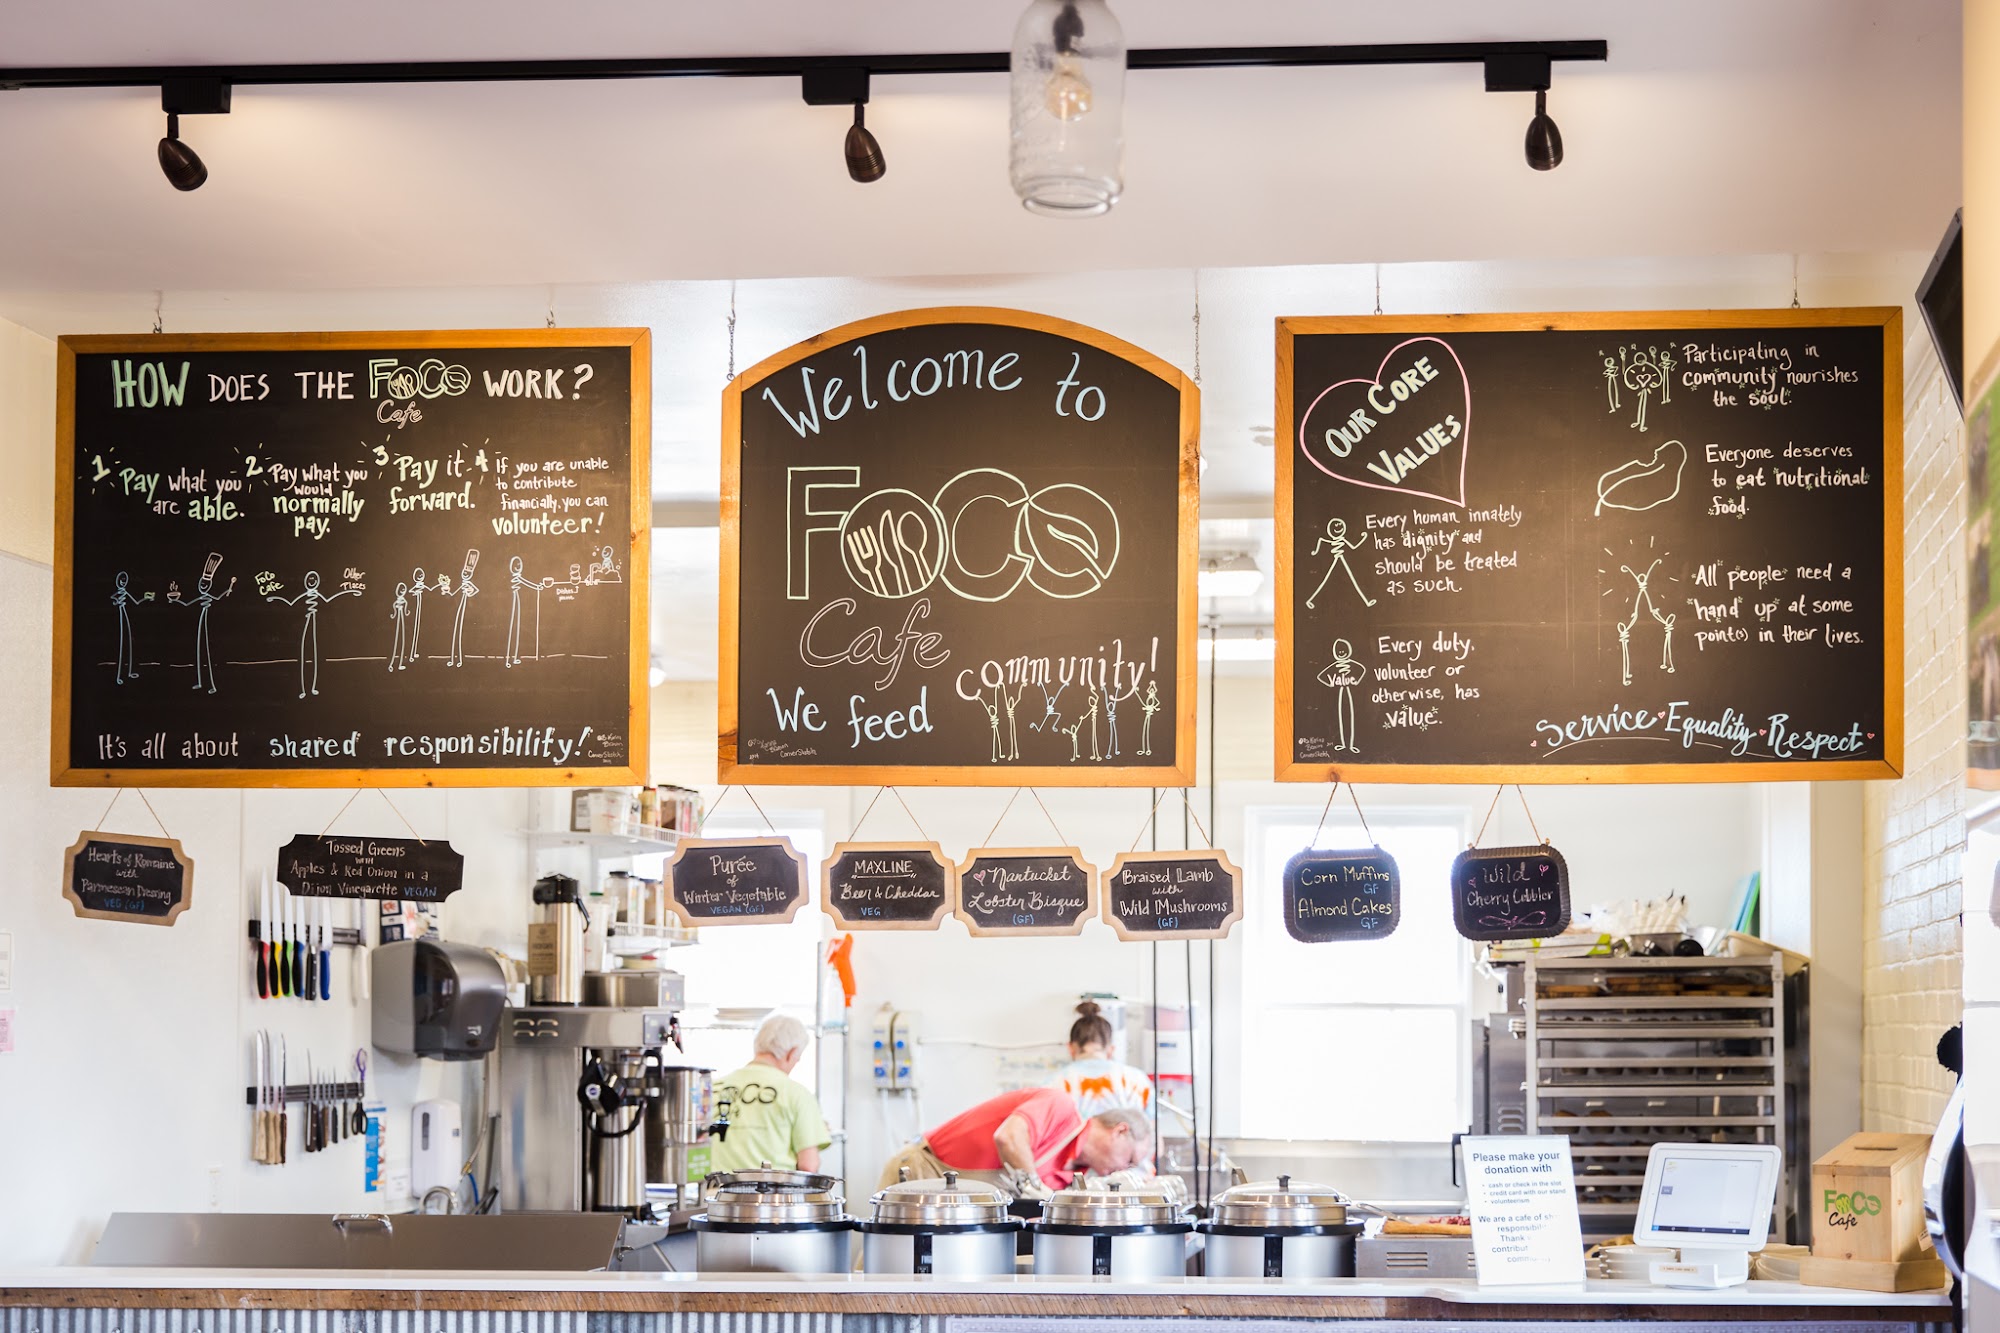 HOW DOES THE FoCo Cafe WORK?
1 Pay what you are able.
2 Pay what you would normally pay.
3 Pay it forward.
4 If you are unable to contribute financially, you can volunteer!
FoCo Cafe
Other Places
It's all about shared responsibility!
Welcome to
FoCo
Cafe
We feed community!
OUR CORE VALUES
Every human innately
has dignity and
should be treated
as such.
Value
Every duty,
volunteer or
otherwise, has
value.
Participating in
community nourishes
the soul.
Everyone deserves
to eat nutritional
food.
All people need a
"hand up" at some
point(s) in their lives.
Service Equality Respect
Hearts of Romaine
with
Parmesean Dressing
VEG (GF)
Tossed Greens
with
Apples & Red Onion in a
Dijon Vinegarette VEGAN
Purée
of
Winter Vegetable
VEGAN (GF)
MAXLINE
Beer & Cheddar
VEG
Nantucket
Lobster Bisque
(GF)
Braised Lamb
with
Wild Mushrooms
(GF)
Corn Muffins
GF
Almond Cakes
GF
Wild
Cherry Cobbler
FoCo
Please make your
donation with
• cash or check in the slot
• credit card with our stand
• volunteerism
We are a cafe of
Thank
FoCo
Cafe